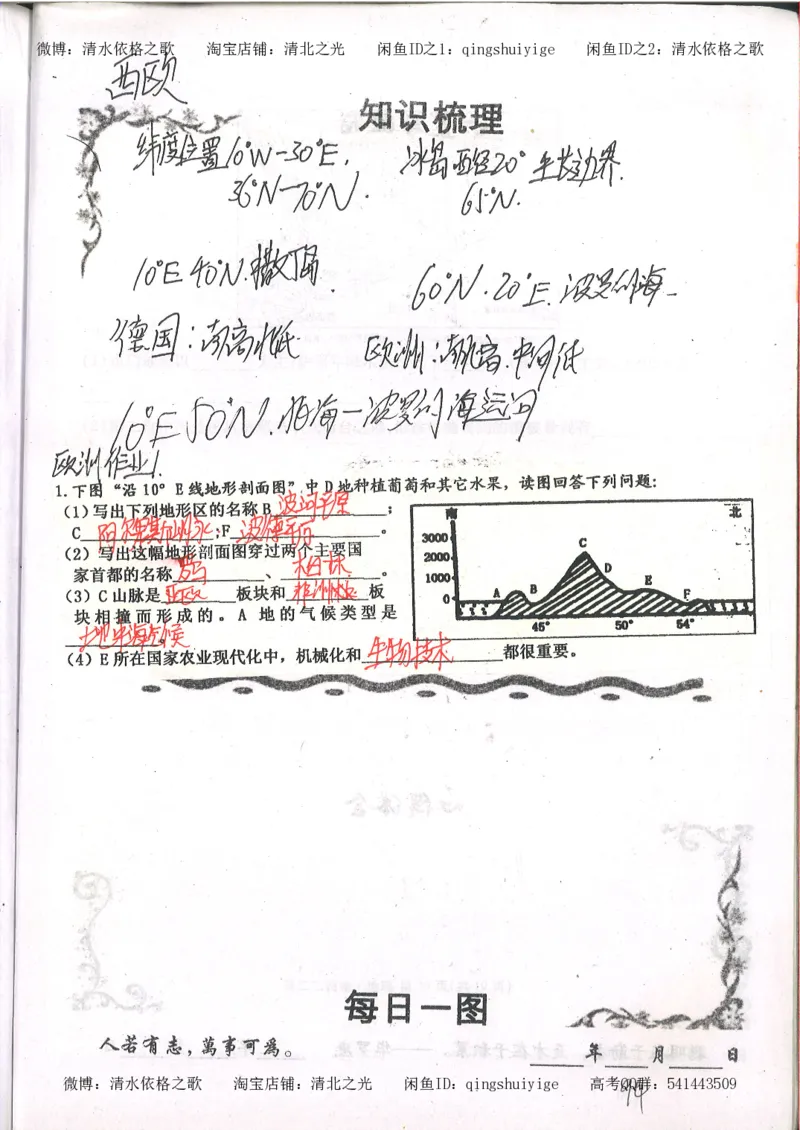 微博：清水依格之歌 淘宝店铺：清北之光 闲鱼ID之1：qingshuiyige 闲鱼ID之2：清水依格之歌
西欧
知识梳理
纬度位置10°W—30°E,
36°N—70°N.
冰岛 西经20° 生长边界.
65°N.
10°E 40°N.撒丁岛.
60°N.20°E.波罗的海
德国:南高北低
欧洲:南北高.中间低
10°E 50°N.北海—波罗的海运河
欧洲作业1.
1.下图“沿10°E线地形剖面图”中D地种植葡萄和其它水果，读图回答下列问题:
(1)写出下列地形区的名称B 波河平原;
C 阿尔卑斯山脉;F 波德平原。
(2)写出这幅地形剖面图穿过两个主要国
家首都的名称 罗马、柏林。
(3)C山脉是 亚欧 板块和 非洲板块 板
块相撞而形成的。A 地的气候类型是
地中海气候。
(4)E所在国家农业现代化中，机械化和 生物技术 都很重要。
南 北
3000
2000
1000
0
A B C D E F
45° 50° 54°
每日一图
人若有志，萬事可為。
年 月 日
微博：清水依格之歌 淘宝店铺：清北之光 闲鱼ID：qingshuiyige 高考QQ群：541443509